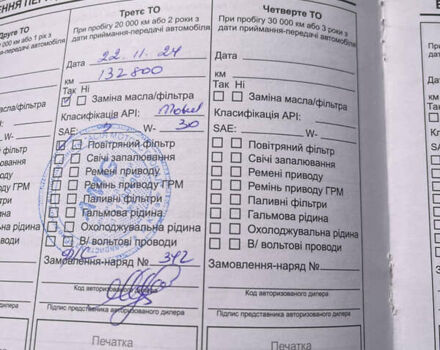 Третє ТО
При пробігу 20 000 км або 2 роки з
дати приймання-передачі автомобіля
Дата 22.11.24
км 132800
Так Ні
Заміна масла/фільтра
Класифікація API: Mobil
SAE: 5 W- 30
Повітряний фільтр
Свічі запалювання
Ремені приводу
Ремінь приводу ГРМ
Паливні фільтри
Гальмова рідина
Охолоджувальна рідина
В/ вольтові проводи
Замовлення-наряд № 342
Код авторизованого дилера
Підпис представника авторизованого дилера
Печатка
Четверте ТО
При пробігу 30 000 км або 3 роки з
дати приймання-передачі автомобіля
Дата
км
Так Ні
Заміна масла/фільтра
Класифікація API:
SAE: W-
Повітряний фільтр
Свічі запалювання
Ремені приводу
Ремінь приводу ГРМ
Паливні фільтри
Гальмова рідина
Охолоджувальна рідина
В/ вольтові проводи
Замовлення-наряд №
Код авторизованого дилера
Підпис представника авторизованого дилера
Печатка